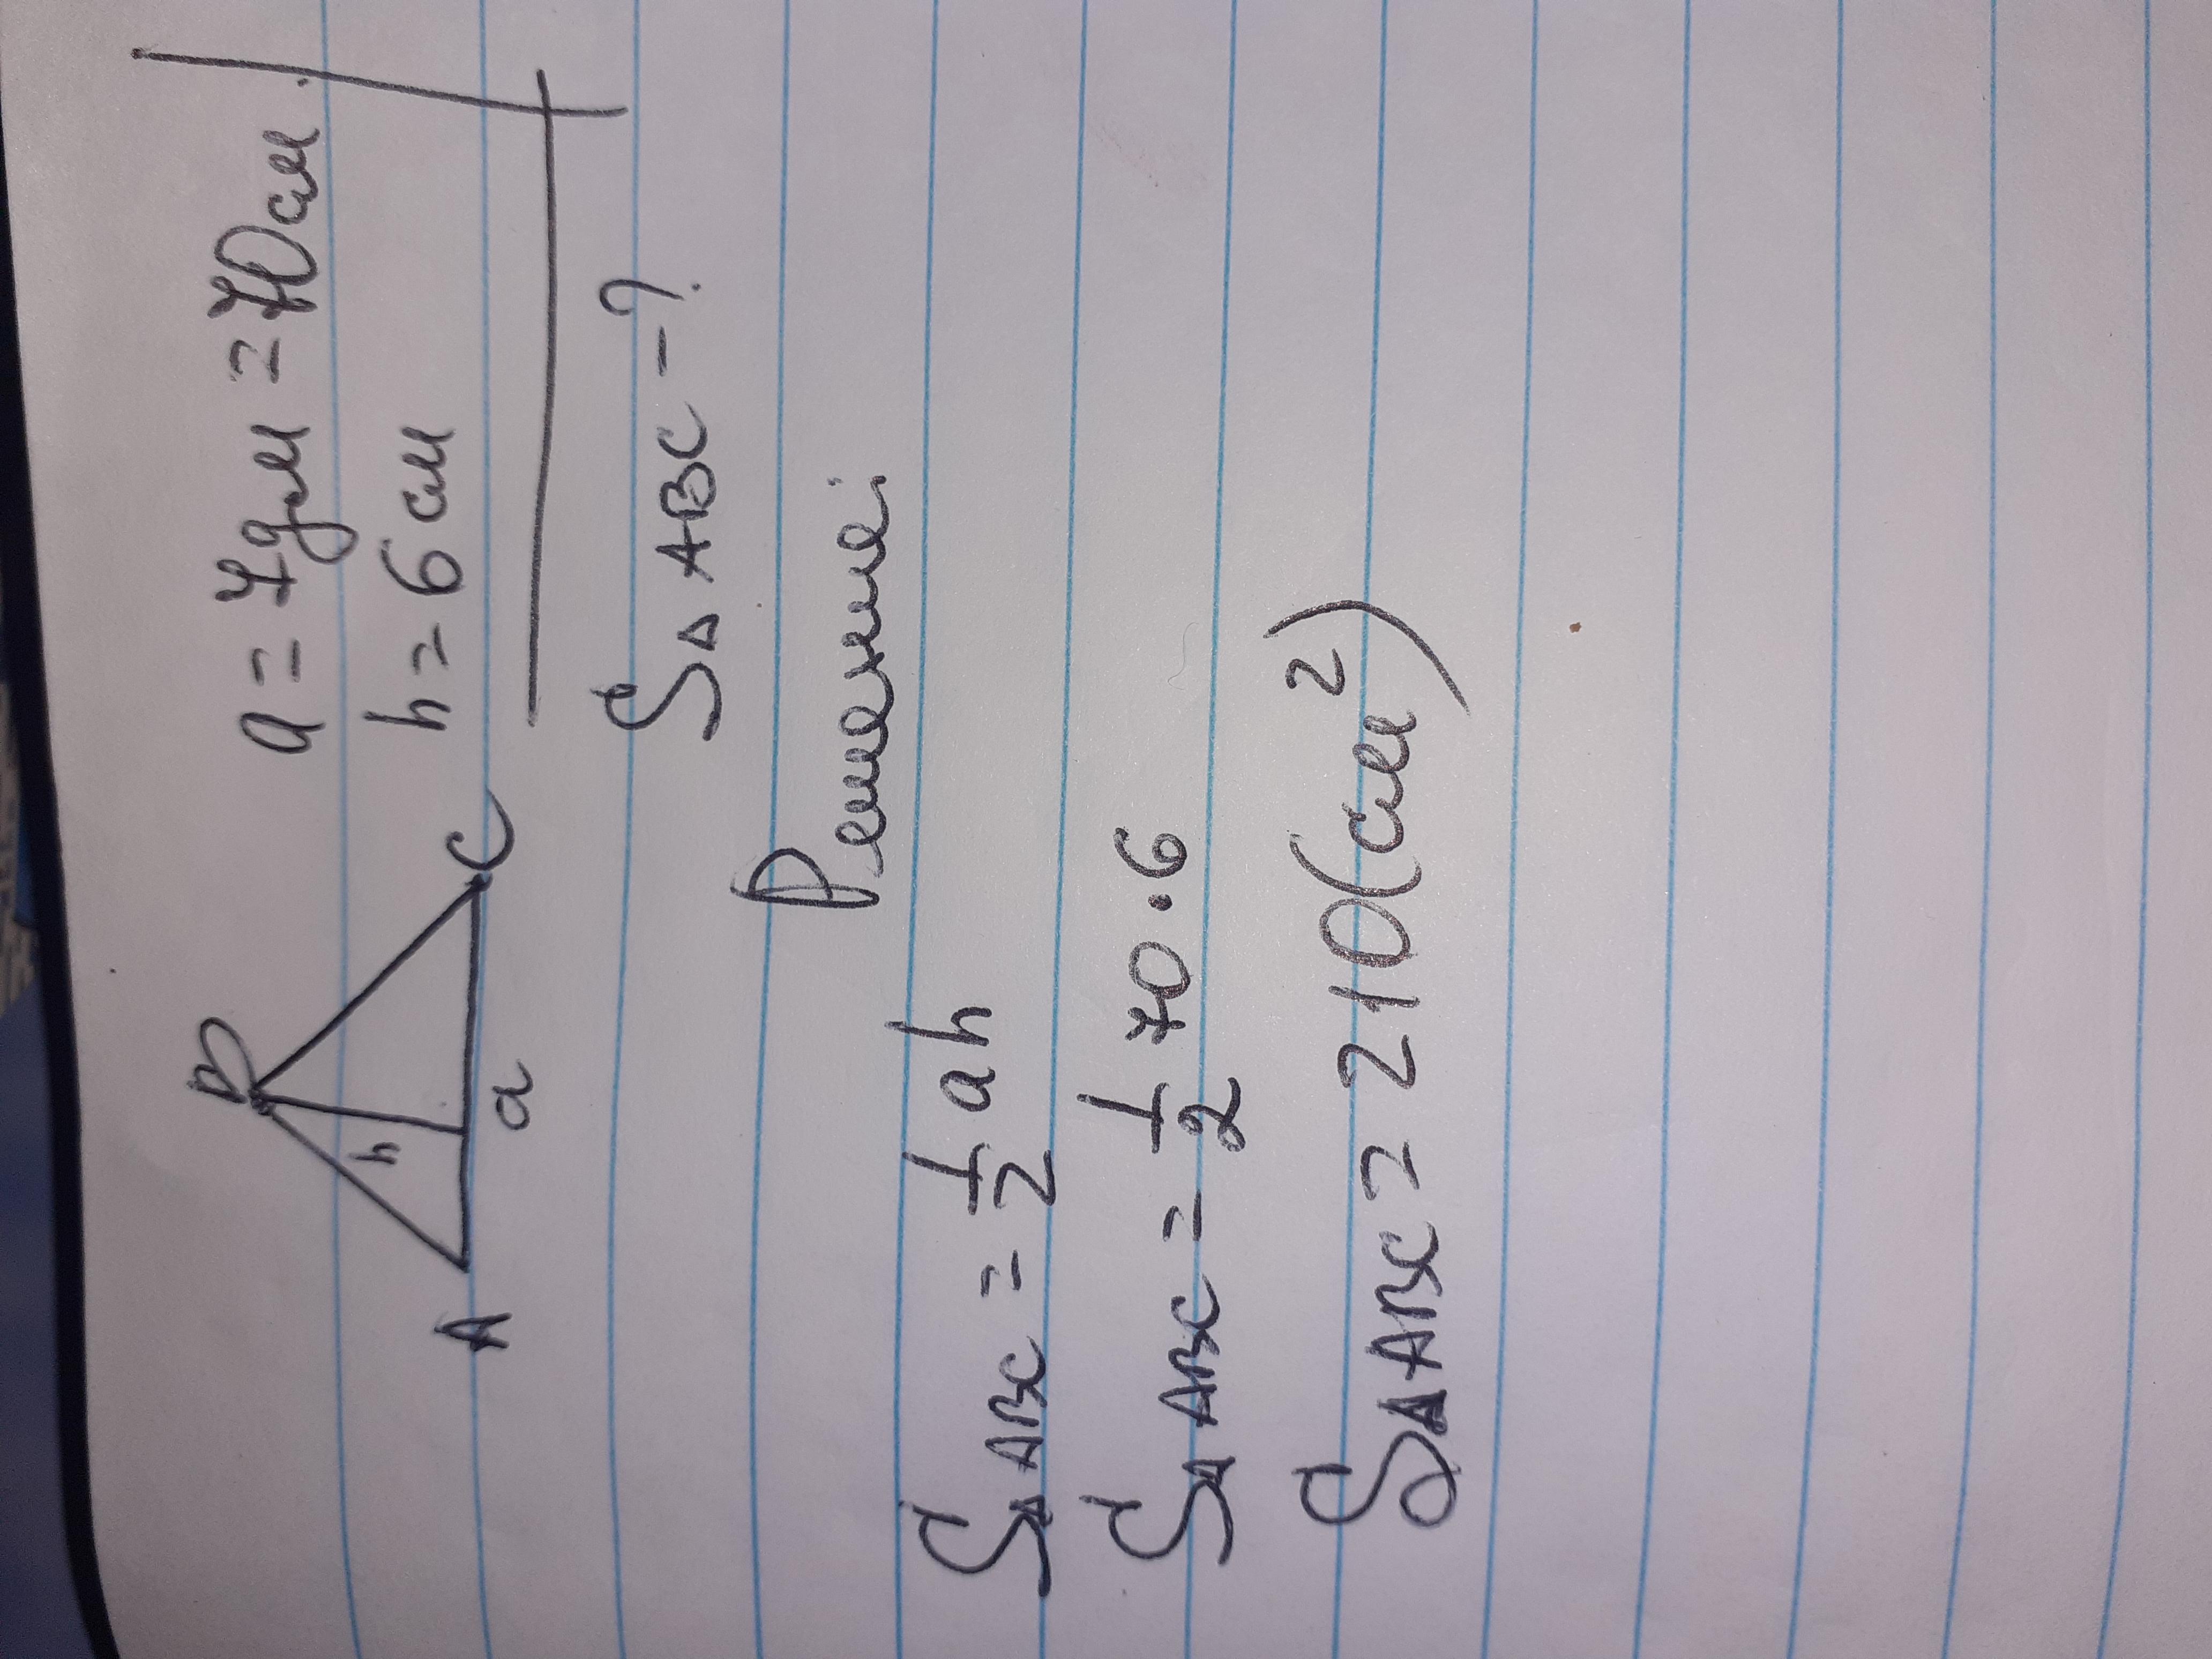 B
h
A
C
a
a = 7дм = 70см.
h = 6 см
S△ABC - ?
Решение:
S△ABC = 1/2 ah
S△ABC = 1/2 70 · 6
S△ABC = 210(см²)